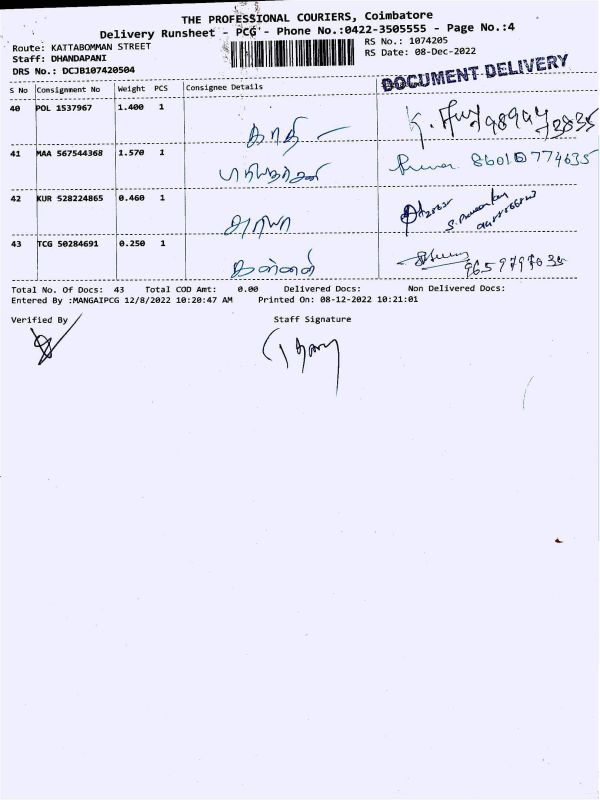 THE PROFESSIONAL COURIERS, Coimbatore
Delivery Runsheet - PCG - Phone No.:0422-3505555 - Page No.:4
Route: KATTABOMMAN STREET
RS No.: 1074205
Staff: DHANDAPANI
RS Date: 08-Dec-2022
DRS No.: DCJB107420504
DOCUMENT DELIVERY
S No Consignment No Weight PCS Consignee Details
40 POL 1537967 1.400 1
காதி
41 MAA 567544368 1.570 1
42 KUR 528224865 0.460 1
43 TCG 50284691 0.250 1
Total No. Of Docs: 43 Total COD Amt: 0.00 Delivered Docs: Non Delivered Docs:
Entered By :MANGAIPCG 12/8/2022 10:20:47 AM Printed On: 08-12-2022 10:21:01
Verified By Staff Signature